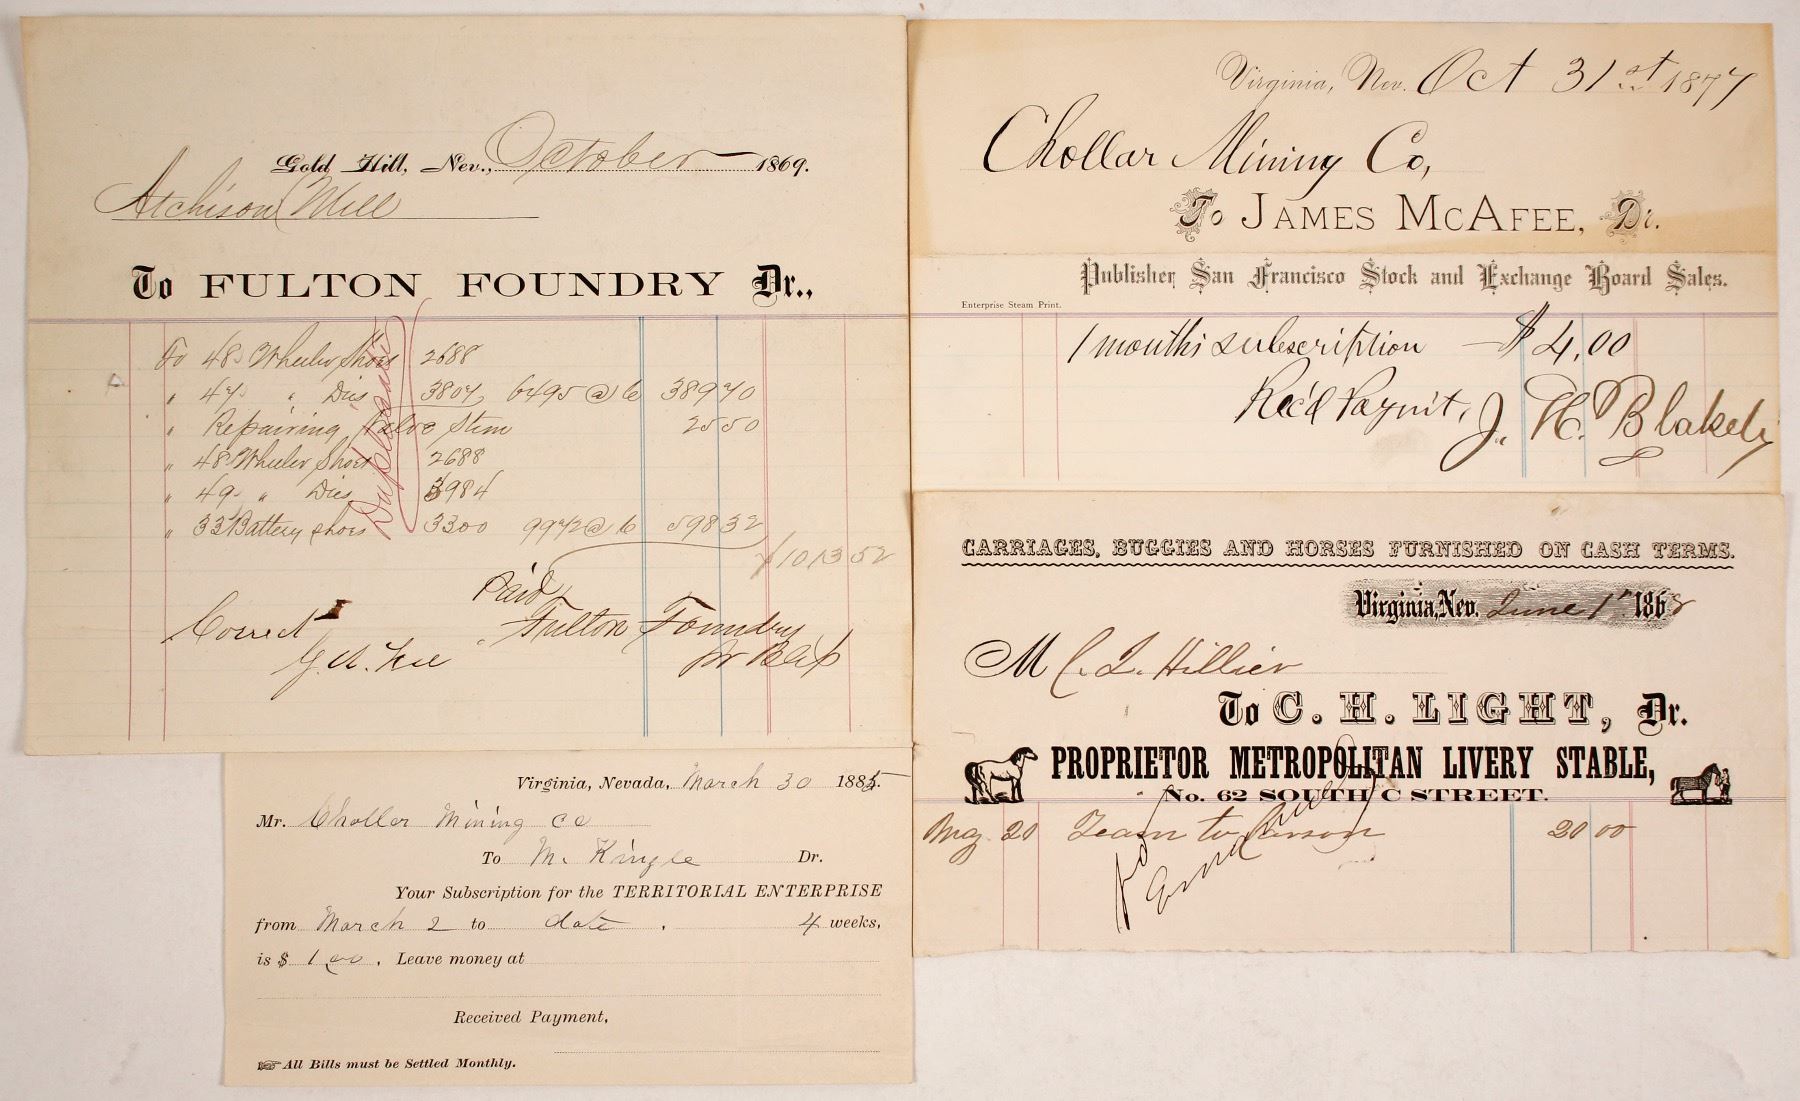 Gold Hill, Nev., October 1869.
Atchison Mill
To FULTON FOUNDRY Dr.,
To 48 Wheeler Shoes 2688
" 47 " Dies 3807 6495 @ 6 389 70
" Repairing Valve Stem 25 50
" 48 Wheeler Shoes 2688
" 49 " Dies 3984
" 33 Battery Shoes 3300 9972 @ 6 598 32
Duplicate
$1013 52
Paid
Correct Fulton Foundry
Virginia, Nev. Oct 31st 1877
Chollar Mining Co,
To JAMES MCAFEE, Dr.
Publisher San Francisco Stock and Exchange Board Sales.
Enterprise Steam Print.
1 month's subscription — $4.00
Rec'd Paym't, J. H. Blakely
CARRIAGES, BUGGIES AND HORSES FURNISHED ON CASH TERMS.
Virginia, Nev. June 1st 1868
M C. L. Hillier
To C. H. LIGHT, Dr.
PROPRIETOR METROPOLITAN LIVERY STABLE,
No. 62 SOUTH C STREET.
May 20 Team to Carson 20 00
Virginia, Nevada, March 30 1885.
Mr. Chollar Mining Co
To M. Kingle Dr.
Your Subscription for the TERRITORIAL ENTERPRISE
from March 2 to date . 4 weeks,
is $ 1 00 . Leave money at
Received Payment,
All Bills must be Settled Monthly.